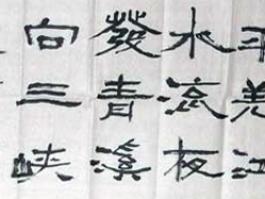 平羌江
水流夜
發青溪
向三峡